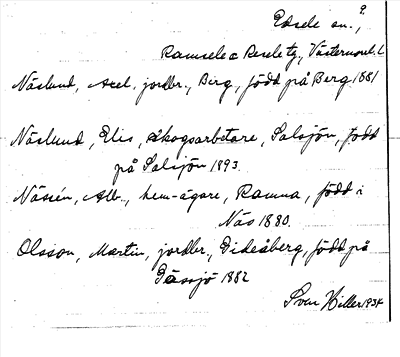 Edsele sn.,
Ramsele o Resele tg, Västernorrl. l
Näslund, Axel, jordbr., Berg, född på Berg 1881
Näslund, Elis, skogsarbetare, Salsjön, född
på Salsjön 1893.
Nässén, Alb., hem.-ägare, Ramna, född i
Näs 1880.
Olsson, Martin, jordbr., Gideåberg, född på
Gåssjö 1882
Sven Hiller 1934